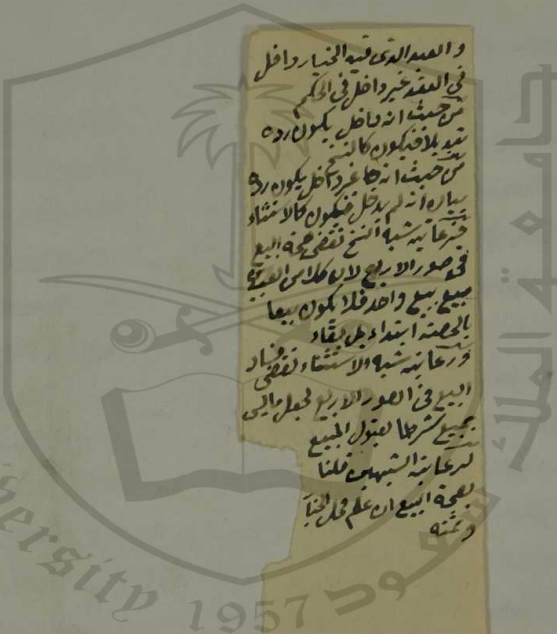 والعبد الذى فيه الخيار داخل
فى العقد غير داخل فى الحكم
من حيث انه داخل يكون رده
تبديلا فيكون كالنسخ
من حيث انه غير داخل يكون رده
بيان انه لم يدخل فيكون كالاستثناء
فرعاية شبه النسخ تقتضى صحة البيع
فى صور الاربع لان كلا من العبدين
مبيع ببيع واحد فلا يكون بيعا
بالحصة ابتداء بل بقاء
ورعاية شبه الاستثناء تقتضى فساد
البيع فى الصور الاربع لجعل ما ليس
بمبيع شرطا لقبول المبيع
لرعاية الشبهين قلنا
بصحة البيع ان علم محل الخيار
وثمنه
King Saud University 1957
جامعة الملك سعود